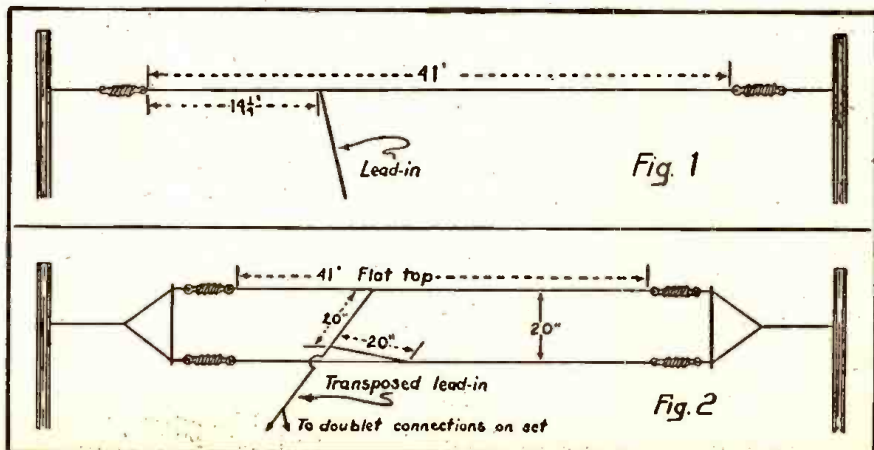 41'
14 1/4'
Lead-in
Fig. 1
41' Flat top
20"
20"
20"
Transposed lead-in
Fig. 2
To doublet connections on set